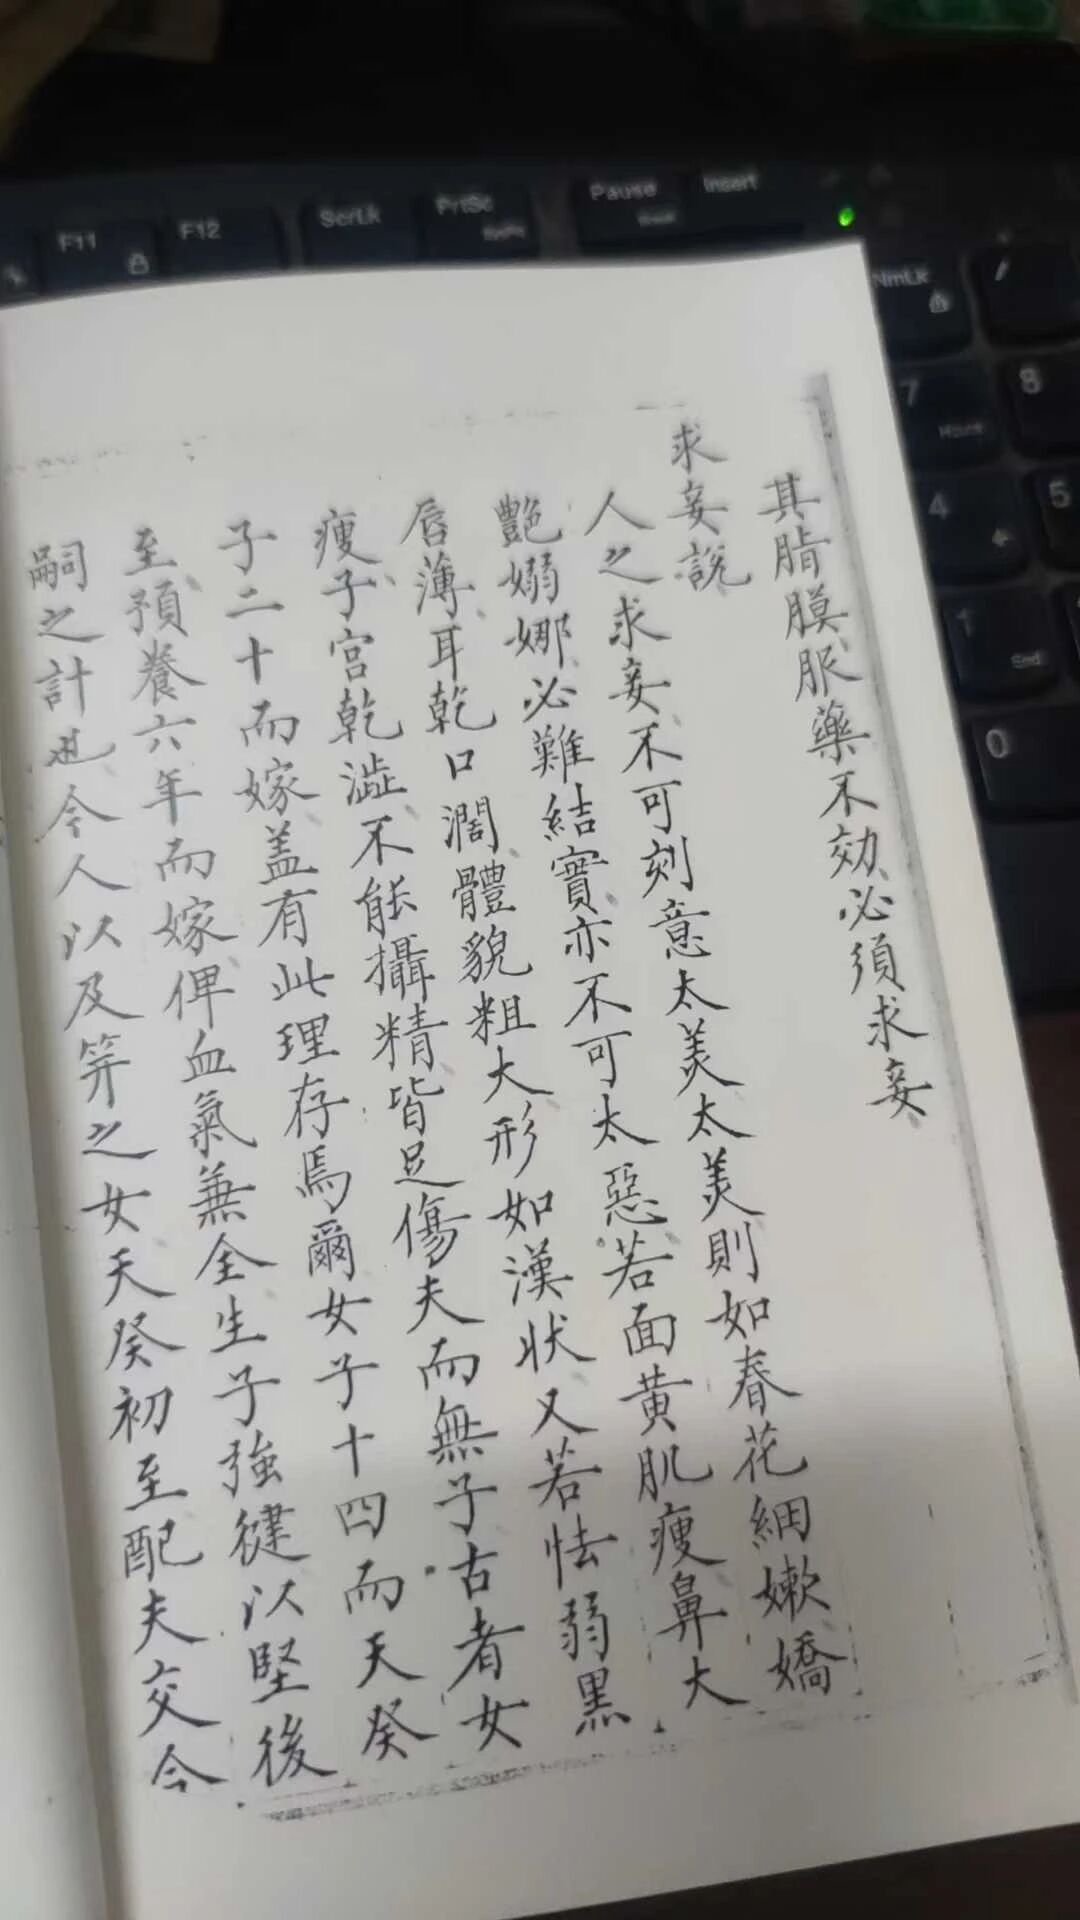 其脂膜服藥不効必須求妾
求妾說
人之求妾不可刻意太美太美則如春花細嫩嬌
艷嫋娜必難結實亦不可太惡若面黃肌瘦鼻大
唇薄耳乾口濶體貌粗大形如漢状又若怯弱黑
瘦子宮乾澁不能攝精皆足傷夫而無子古者女
子二十而嫁盖有此理存焉爾女子十四而天癸
至預養六年而嫁俾血氣兼全生子強健以堅後
嗣之計也今人以及笄之女天癸初至配夫交合
F11
F12
ScrLk
PrtSc
SysRq
Pause
Break
Insert
NmLk
7
Home
8
4
5
1
End
0
/